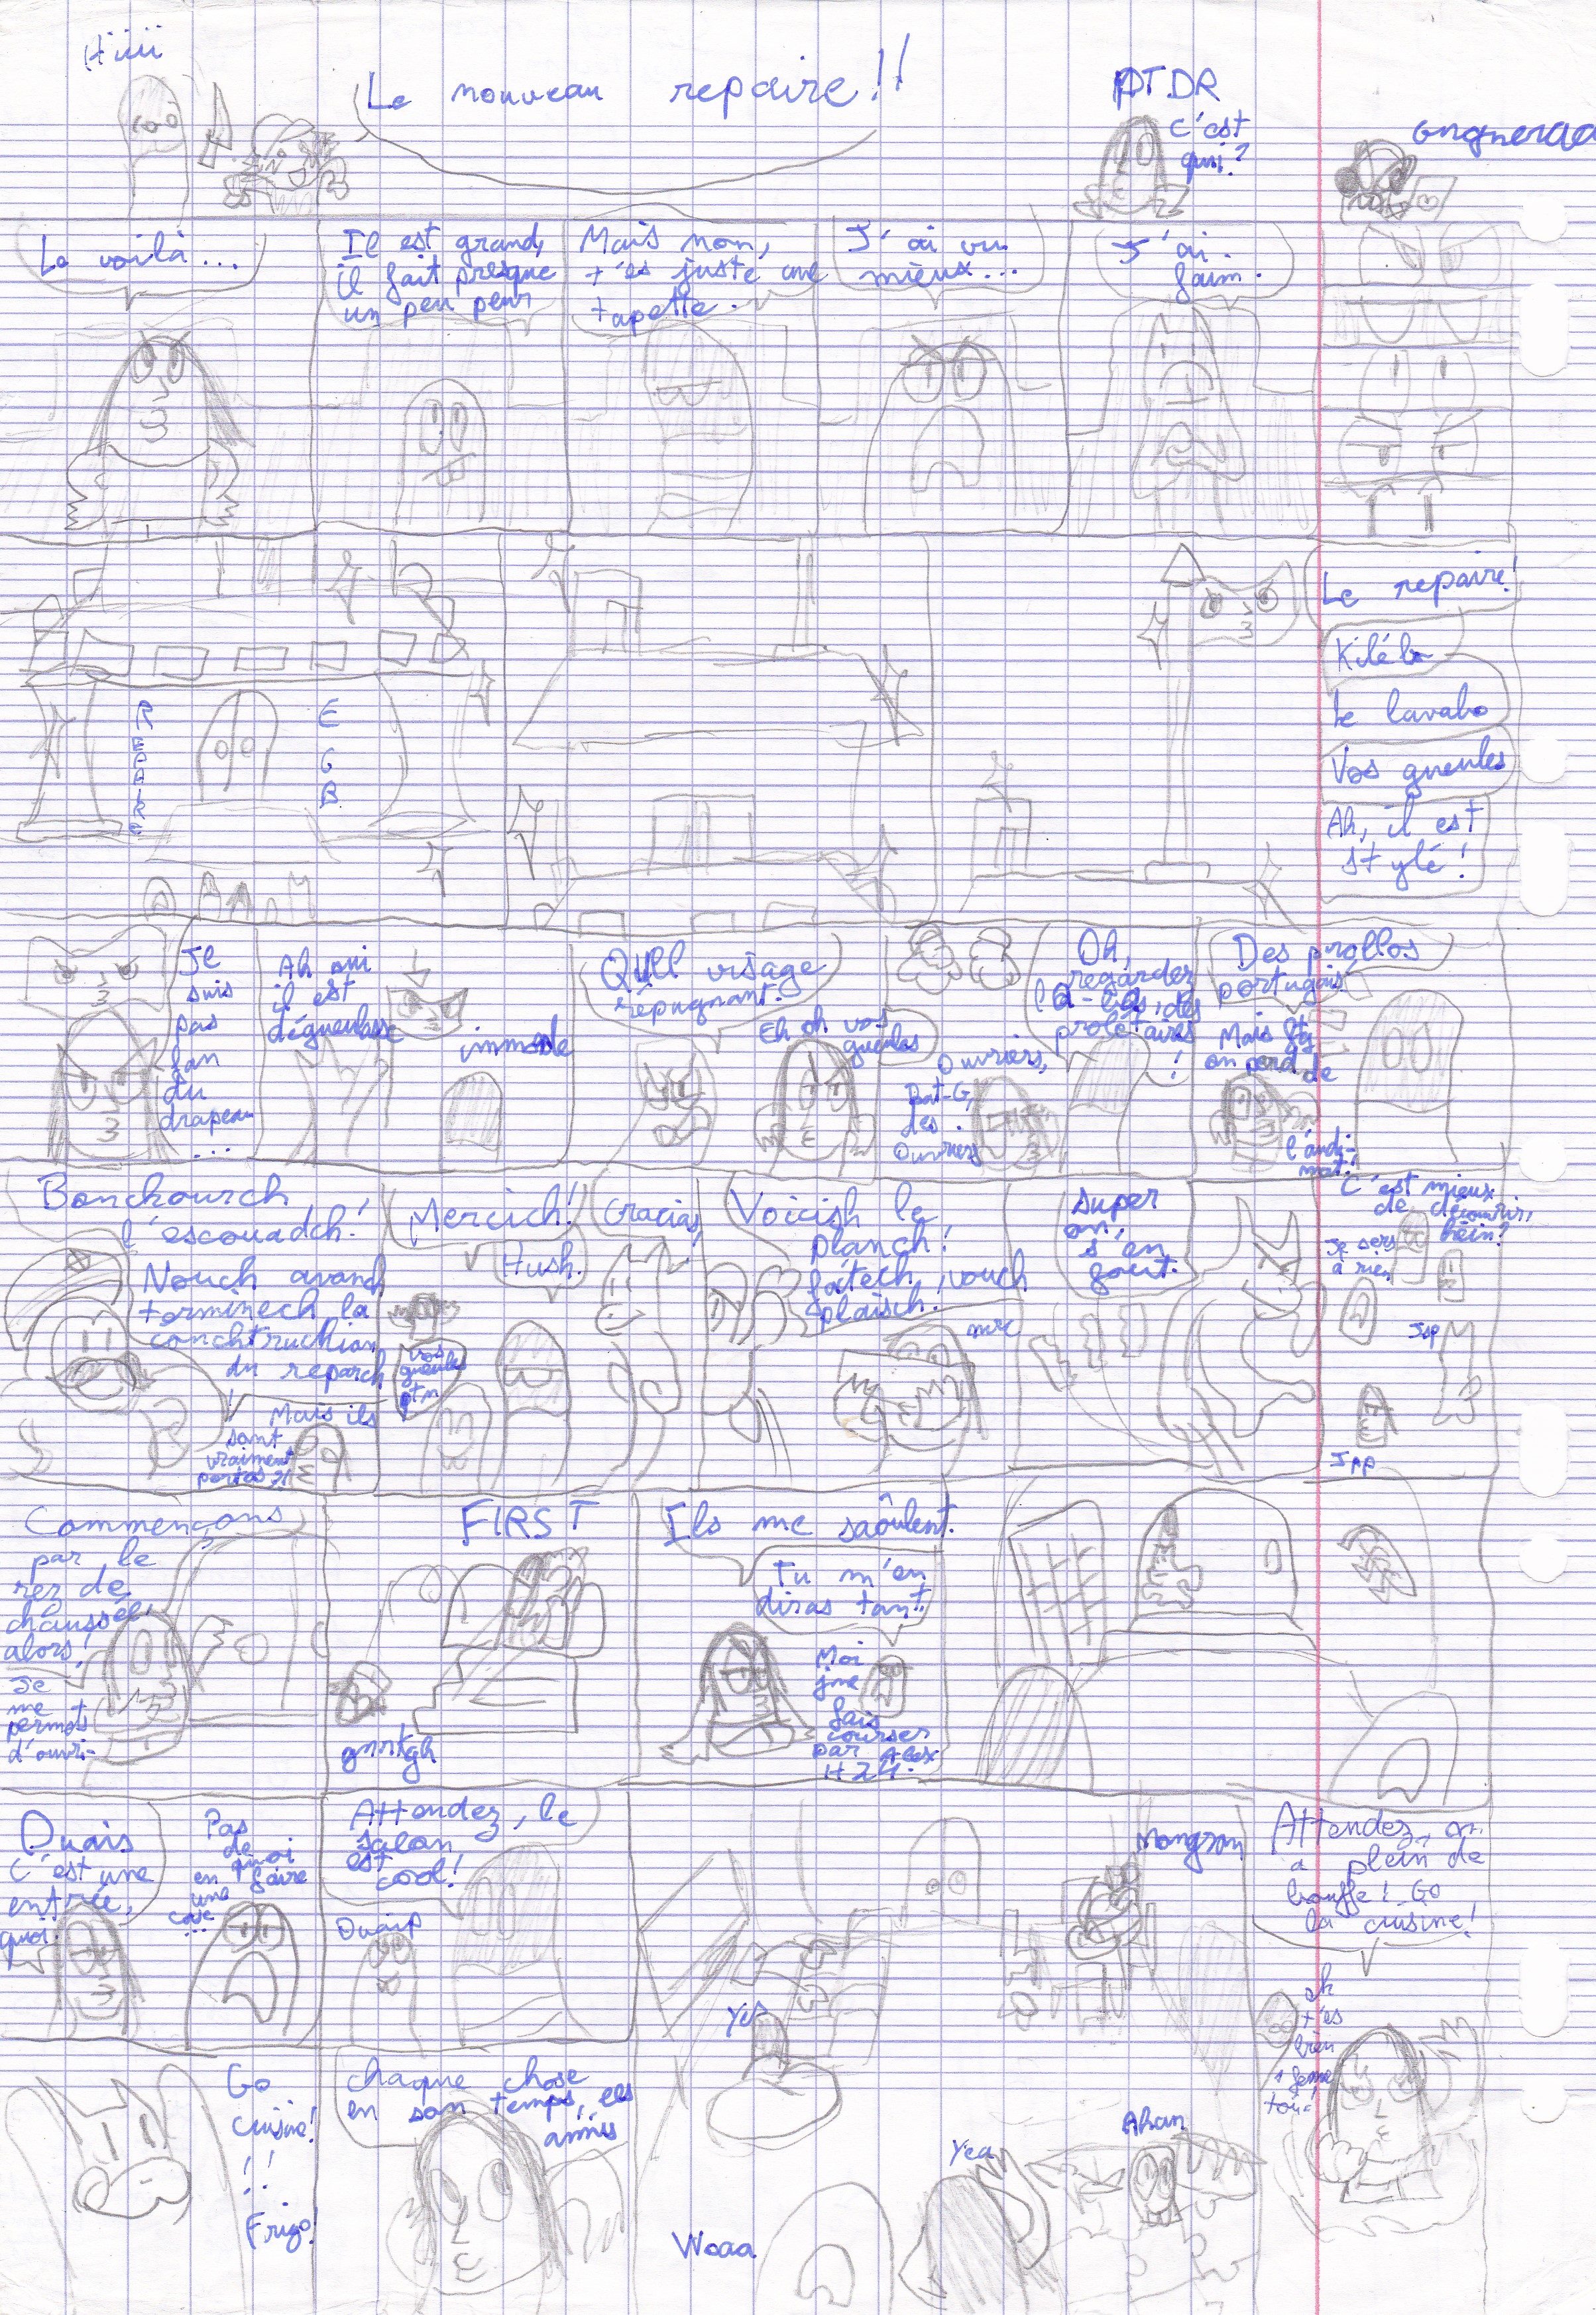 Hiii
Le nouveau repaire!!
PTDR
C'est
qui?
Le voilà...
Il est grand,
il fait presque
un peu peur
Mais non,
t'es juste une
tapette.
J'ai vu
mieux...
J'ai
faim.
Le repaire!
Kilébo
Le lavabo
Vos gueules
Ah, il est
stylé!
REPAIRE
E
G
B
Je
suis
pas
fan
du
drapeau
...
Ah oui
il est
dégueulasse
immonde
QUEl visage
répugnant.
Eh oh vos
gueules
Oh,
regardez
là-bas, des
prolétaires
!
Ouvriers,
Bat-G,
des
Ouvriers
Des prollos
portugais
Mais
on perd de
l'audi-
mat!
Bonchourch
l'escouadch!
Nouch avanch
terminech la
conchtruchion
du reparch
!
Mais ils
sont
vraiment
portos?!
Mercich!
Hush.
vos
gueules
ptn
Gracias!
Voicish le
planch!
fåtech, vouch
plaisch.
mrc
Super
on
s'en
fout.
C'est mieux
de découvrir,
hein?
Je sers
à rien
Jsp
Jpp
Commençons
par le
rez de
chaussée,
alors!
Je
me
permets
d'ouvri-
FIRST
gnrtgh
Ils me saôulent.
Tu m'en
diras tant.
Moi
jme
fais
courser
par Alex
H24.
Ouais
C'est une
entrée,
quoi.
Pas
de
quoi
en faire
une
...
Attendez, le
salon
est
cool!
Ouaip
Yes
Attendez, on
a plein de
bouffe! Go
la cuisine!
ah
t'es
bien
toi!
Go
cuisine!
!!
Frigo!
Chaque chose
en son temps, les
amis
Woaa
Yea
Ahan